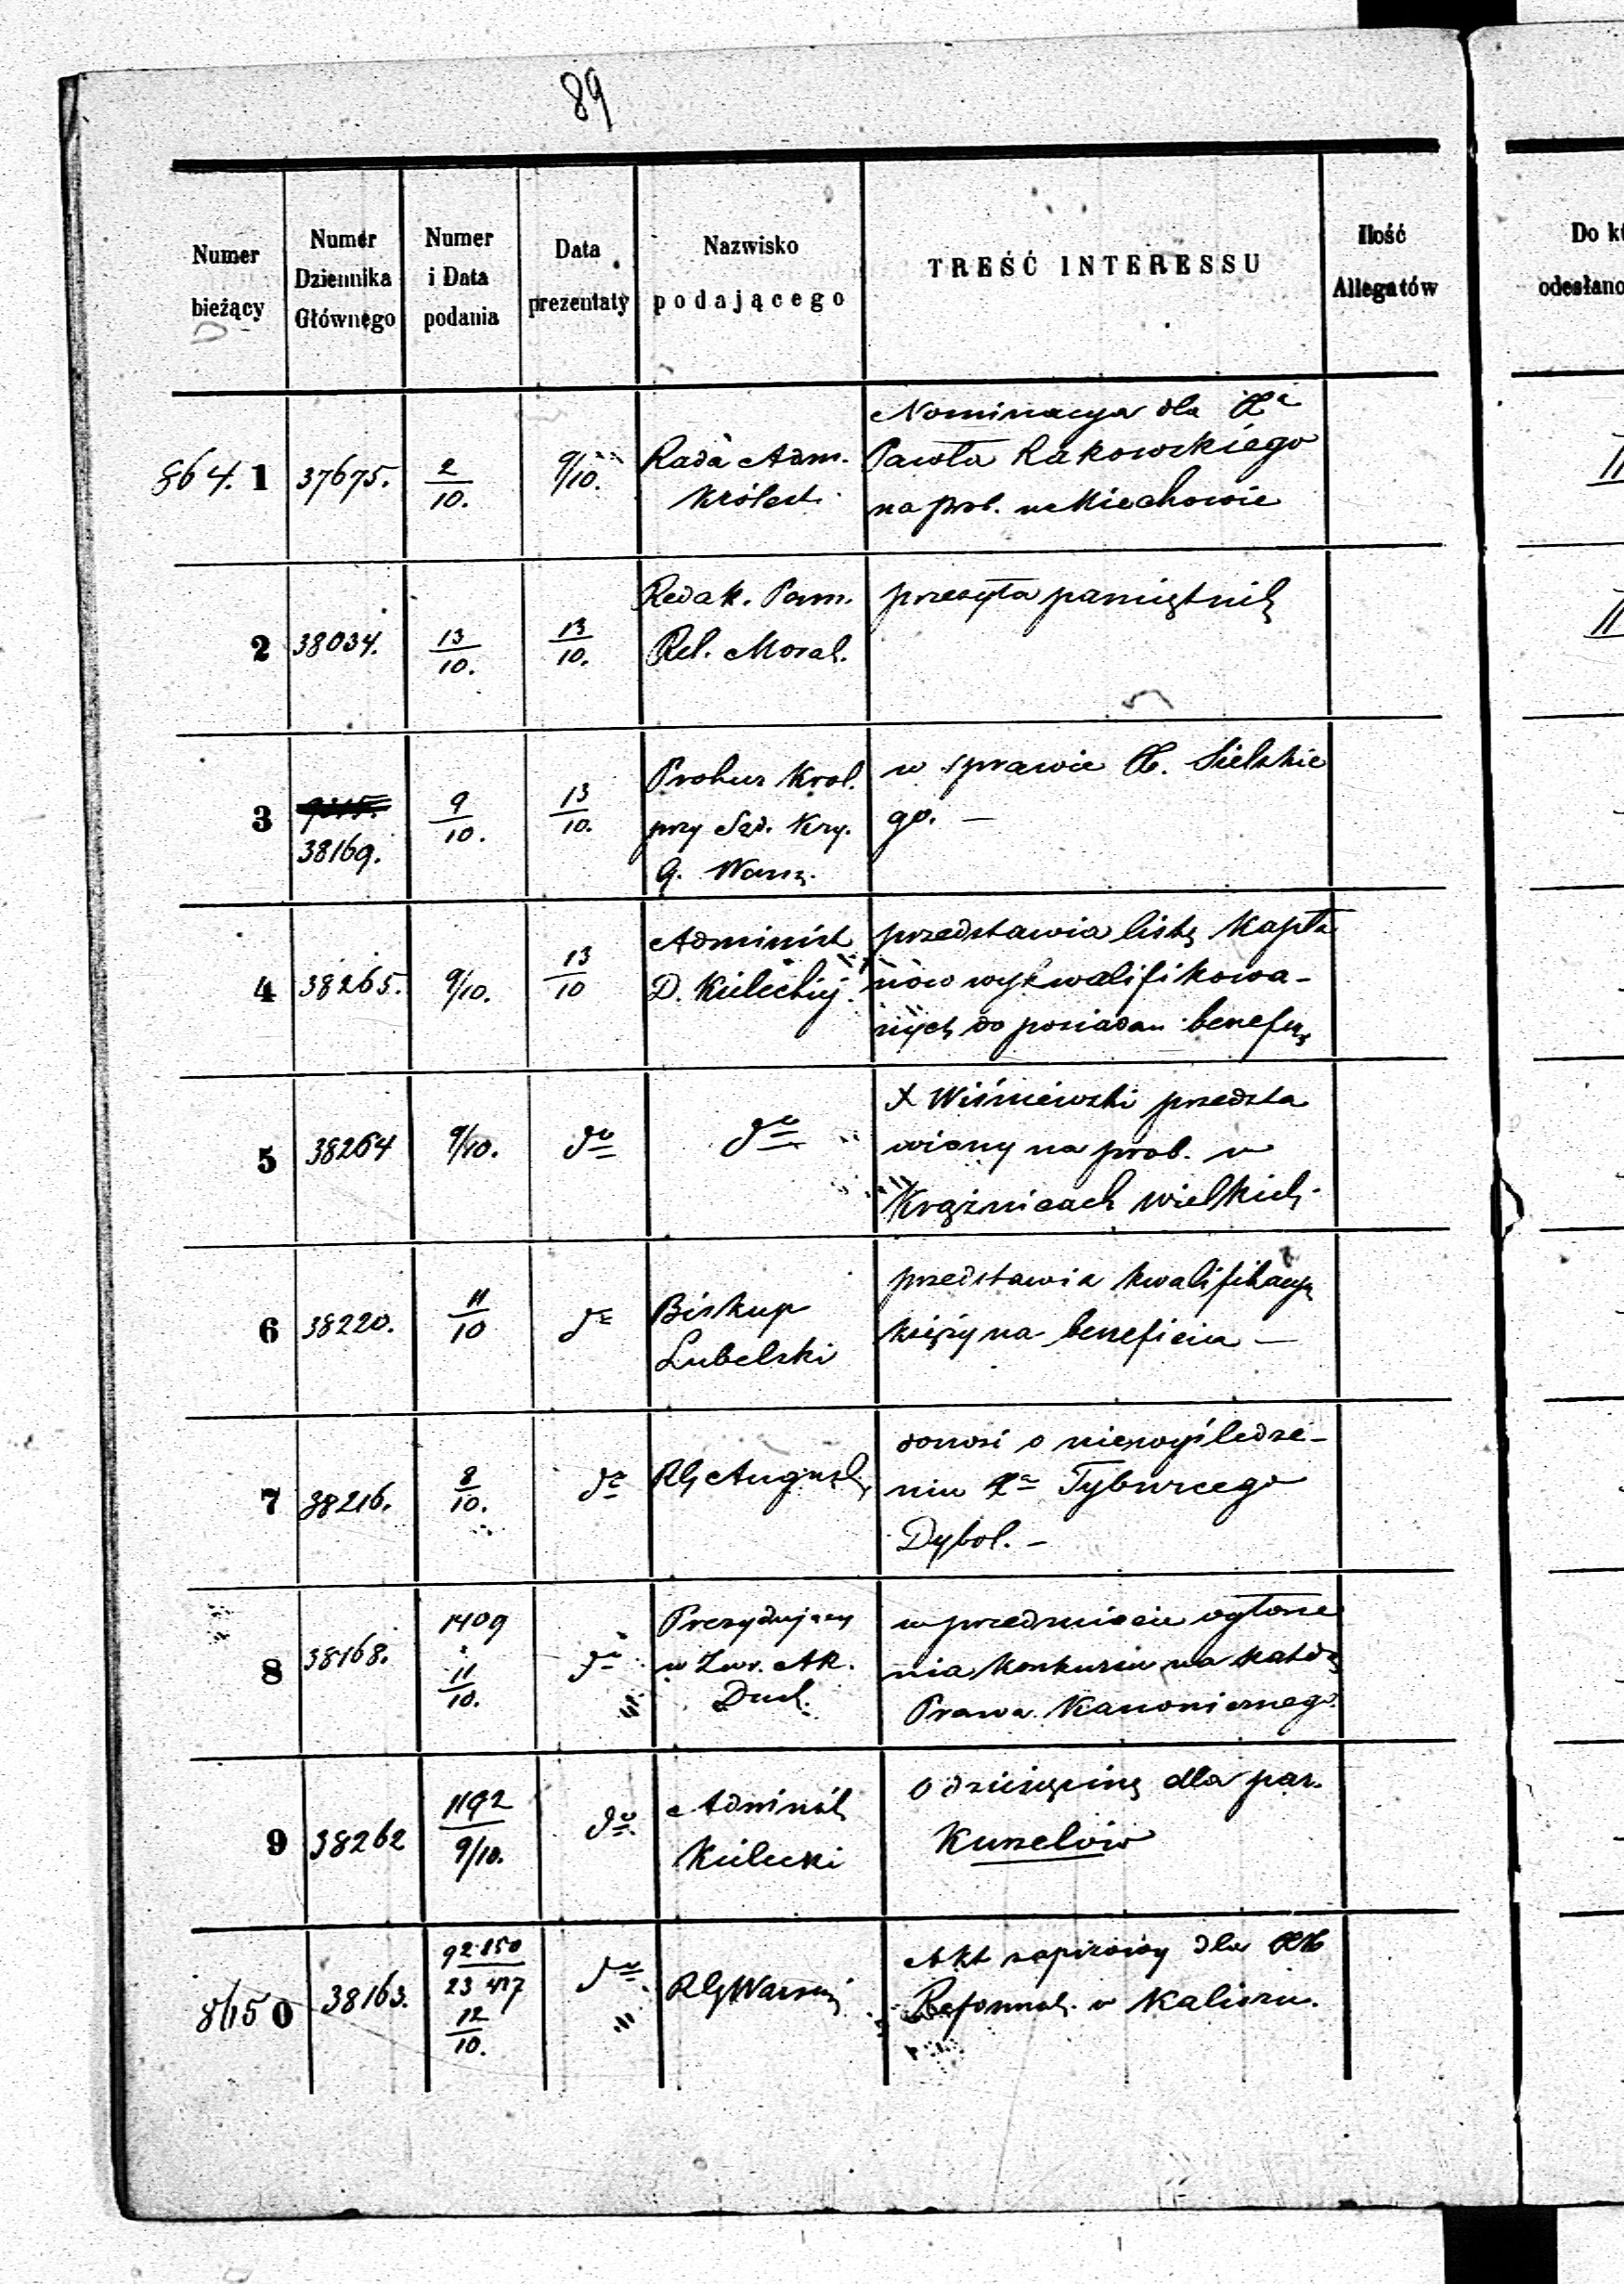 89
Numer bieżący
Numer Dziennika Głównego
Numer i Data podania
Data prezentaty
Nazwisko podającego
TREŚĆ INTERESSU
Ilość Allegatów
Do kt
odesłano
864. 1
37675.
2/10.
9/10.
Rada Adm.
Królest.
Nominacya dla
Pawła Rakowskiego
na prob. w Miechowie
II
2
38034.
13/10.
13/10.
Redak. Pam.
Rel. Moral.
przesyła pamiętnik
II
3
38169.
9/10.
13/10.
Prokur Krol.
przy Sąd. Kry.
G. Warsz.
w sprawie Sielskie
go. —
4
38265.
9/10.
13/10
Administ
D. Kieleckiej
przedstawia listę Kapła
nów wykwalifikowa-
nych do posiadan benef
5
38264
9/10.
do
do
X Wiśniewski przedsta
wiony na prob. w
Krężnicach wielkich
6
38220.
11/10
do
Biskup
Lubelski
przedstawia kwalifikacyę
księży na beneficia —
7
38216.
8/10.
do
RG August
donosi o niewyśledze-
niu Xa Tyburcego
Dybol. —
8
38168.
1409
11/10.
do
Prezydujący
w Zwr. Ak.
Duch.
w przedmiocie ogłosze
nia konkursu na katedrę
Prawa Kanonicznego
9
38262
1192
9/10.
do
Administ
Kielecki
O dziesięcinę dla par.
Kurzelów
8615 0
38163.
92850
23417
12/10.
do
RG Warsz
Akt zapisowy dla XX
Reformat. w Kaliszu.